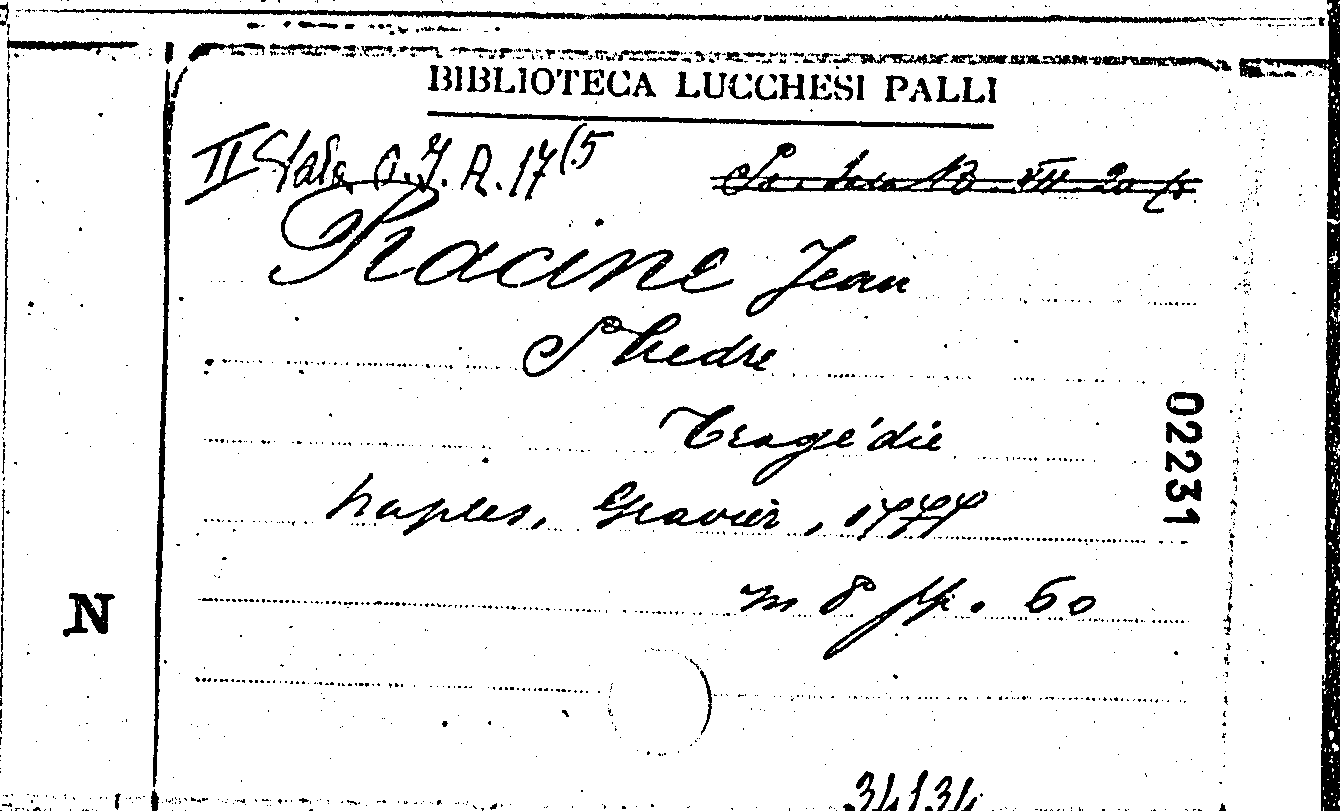 BIBLIOTECA LUCCHESI PALLI
II Sala A. 17 (5
Racine Jean
Phedre
Tragédie
Naples, Gravier, 1777
in 8 pp. 60
02231
N
34134